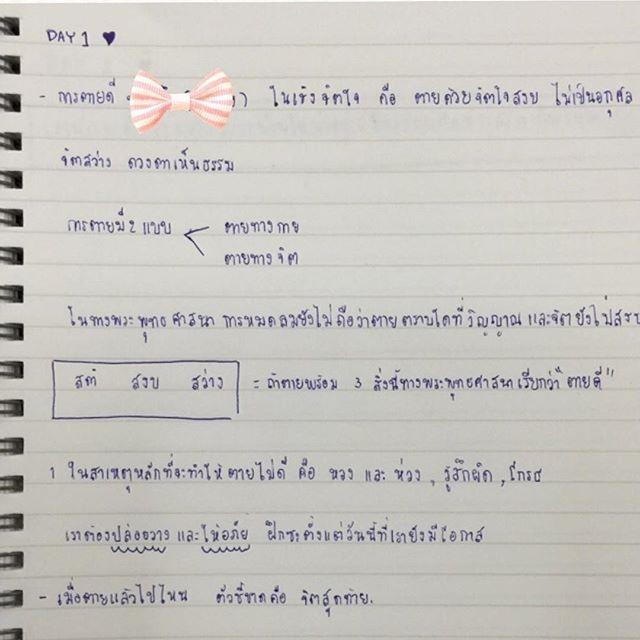 DAY 1 ♥
- การตายดี ) ในเชิงจิตใจ คือ ตายด้วยจิตใจสงบ ไม่เป็นอกุศล
จิตสว่าง ดวงตาเห็นธรรม
การตายมี 2 แบบ
ตายทางกาย
ตายทางจิต
ในทางพระพุทธศาสนา การหมดลมยังไม่ถือว่าตาย ตราบใดที่วิญญาณและจิตยังไม่สงบ
สติ สงบ สว่าง = ถ้าตายพร้อม 3 สิ่งนี้ทางพระพุทธศาสนาเรียกว่า "ตายดี"
1 ในสาเหตุหลักที่จะทำให้ตายไม่ดี คือ หวง และ ห่วง , รู้สึกผิด , โกรธ
เราต้องปล่อยวาง และให้อภัย ฝึกซะตั้งแต่วันนี้ที่เรายังมีโอกาส
- เมื่อตายแล้วไปไหน ตัวชี้ขาดคือ จิตสุดท้าย.